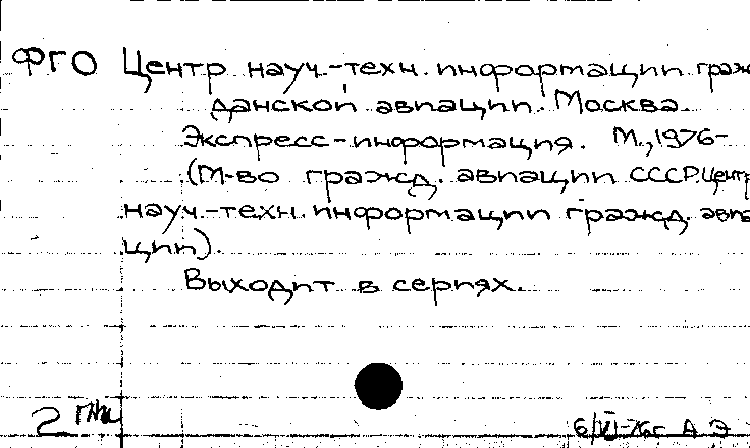 ФГО Центр науч.-техн. информации граж
данской авиации. Москва.
Экспресс-информация. М., 1976-
(М-во гражд. авиации СССР. Центр
науч.-техн. информации гражд. авиа
ции).
Выходит в сериях.
2
6/VI-76г А.Э